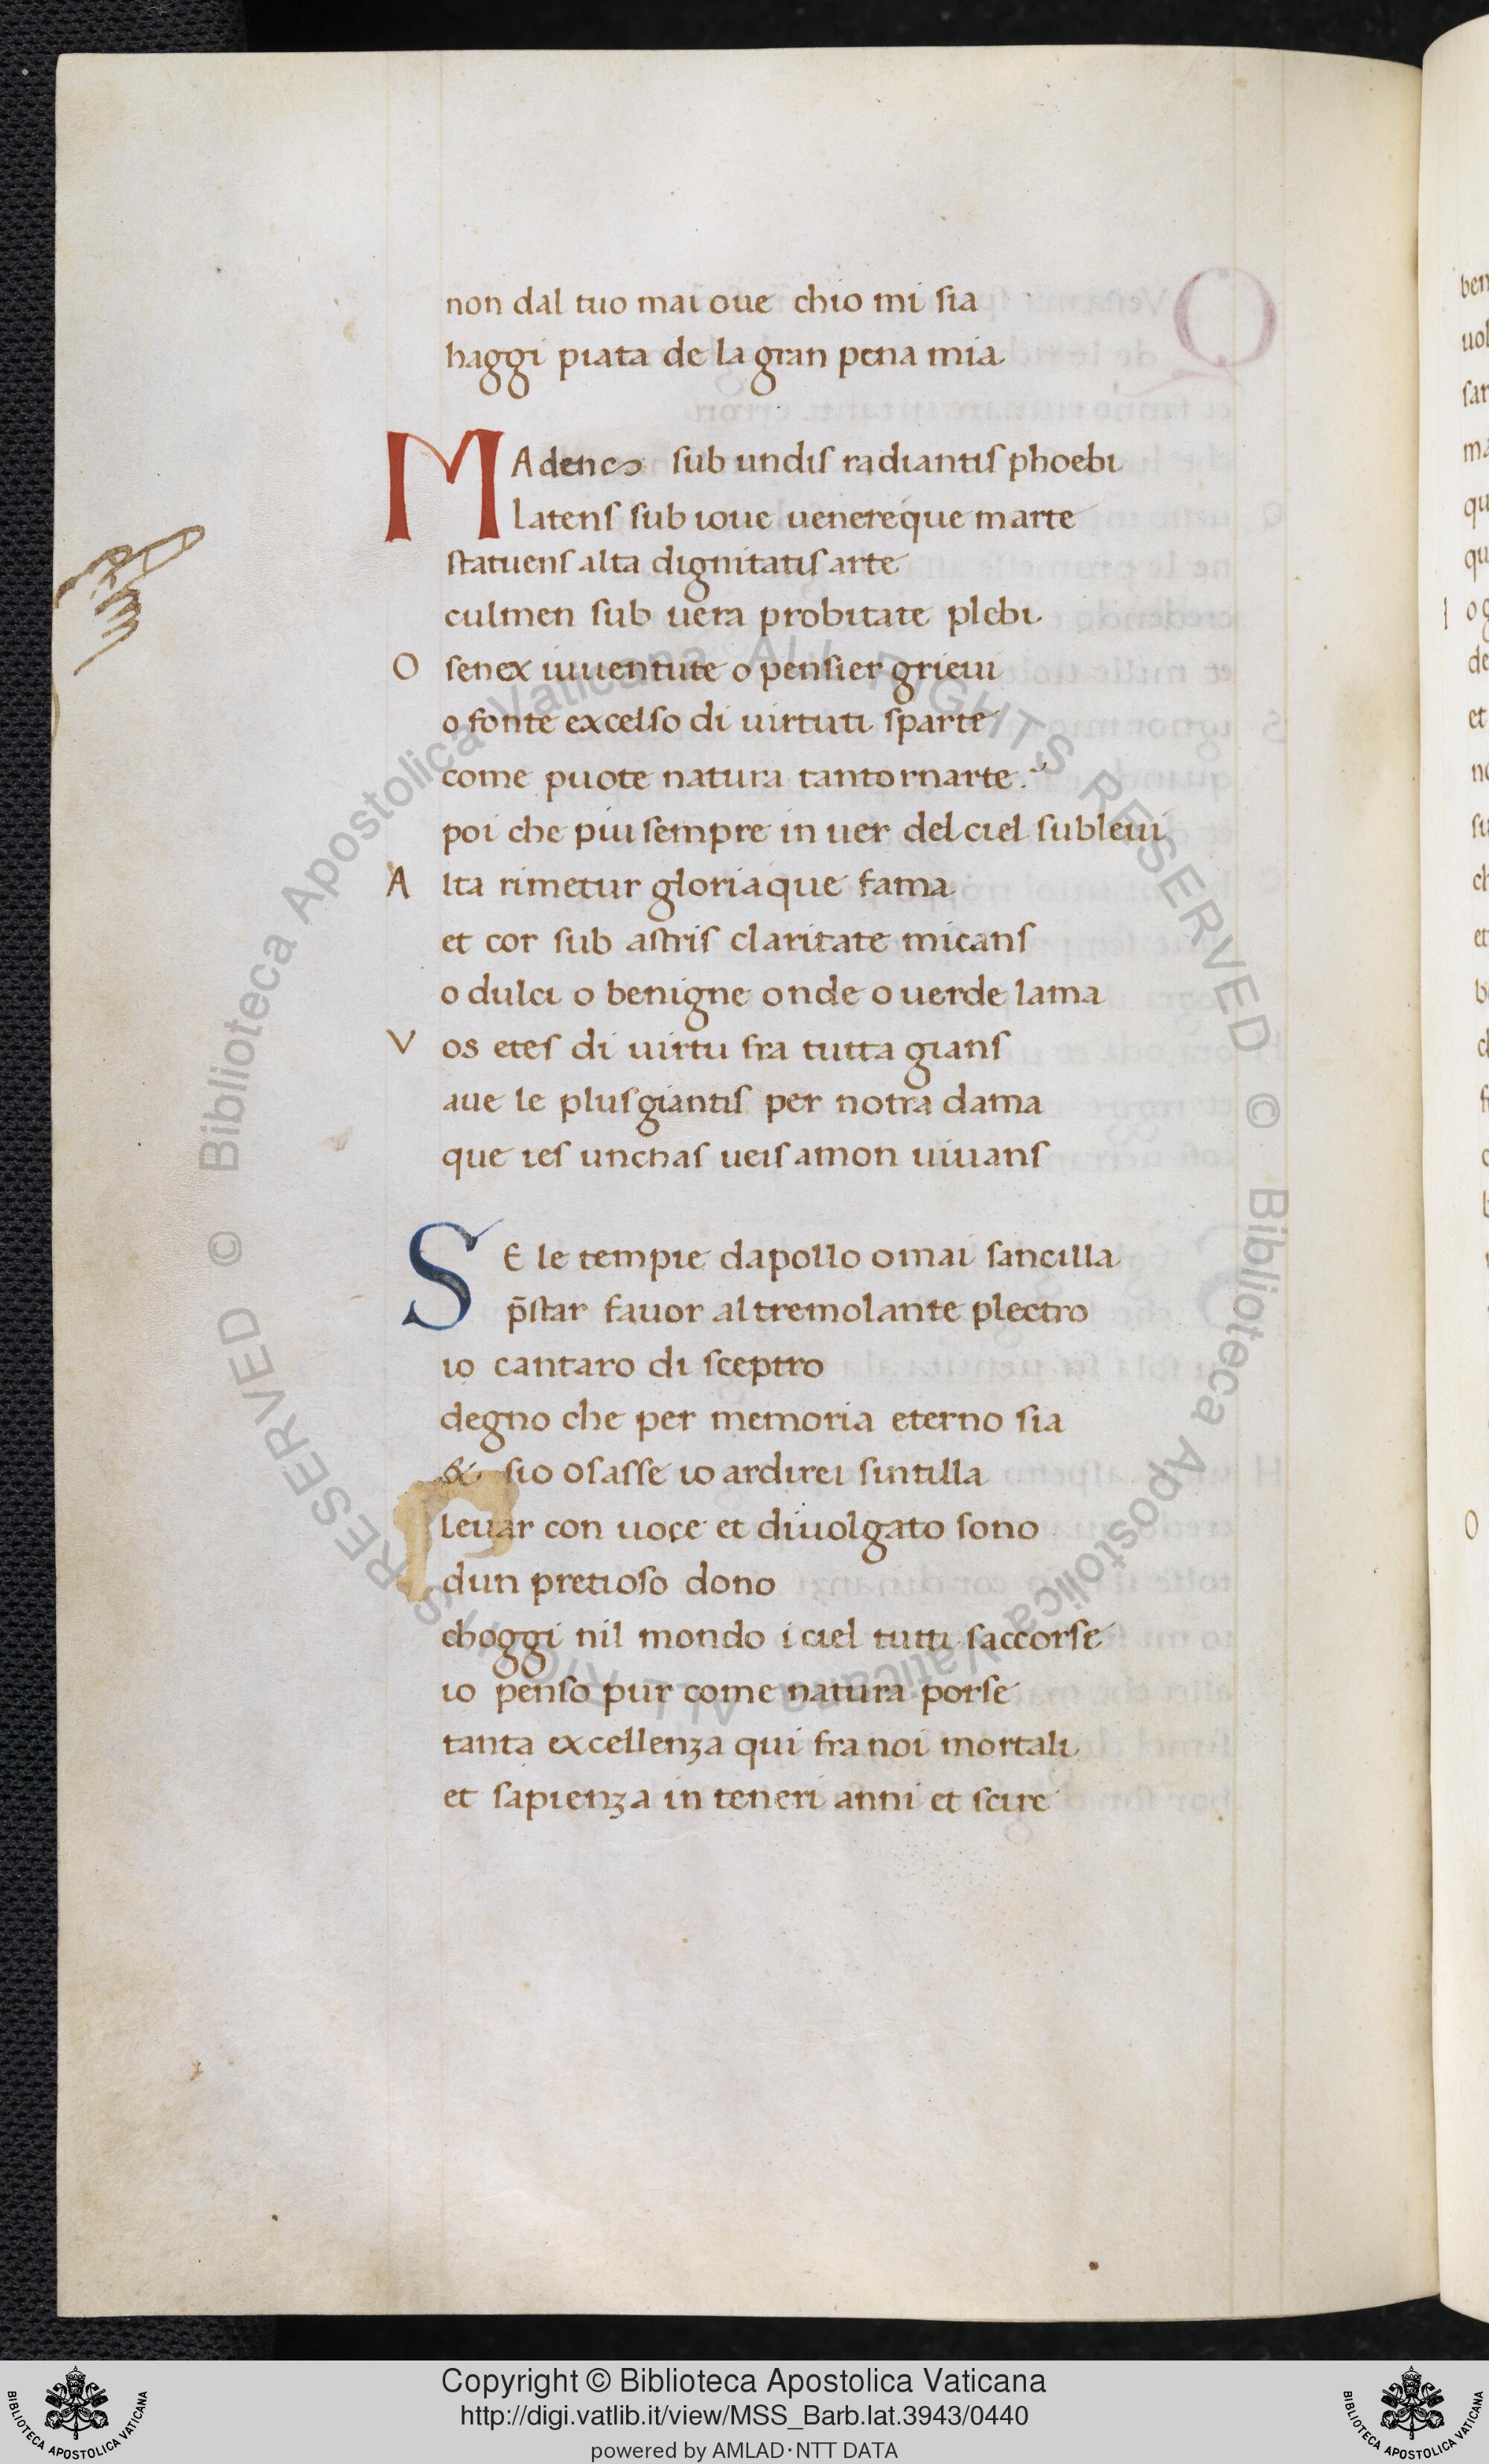 non dal tuo mai oue chio mi sia
haggi piata de la gran pena mia
MAdenes sub undis radiantis phoebi
Latens sub ioue uenereque marte
statuens alta dignitatis arte
culmen sub uera probitate plebi
O senex iuuentute o pensier grieui
o fonte excelso di uirtuti sparte
come puote natura tantornarte?
poi che piu sempre in uer del ciel subleui
A lta rimetur gloriaque fama
et cor sub astris claritate micans
o dulci o benigne onde o uerde lama
V os etes di uirtu fra tutta gians
aue le plusgiantis per notra dama
que ies unchas ueis amon uiuans
SE le tempie dapollo omai sancilla
p̄star fauor al tremolante plectro
io cantaro di sceptro
degno che per memoria eterno sia
& sio osasse io ardirei sintilla
leuar con uoce et diuolgato sono
dun pretioso dono
choggi nil mondo i ciel tutti saccorse
io penso pur come natura porse
tanta excellenza qui fra noi mortali
et sapienza in teneri anni et scire
Copyright © Biblioteca Apostolica Vaticana
http://digi.vatlib.it/view/MSS_Barb.lat.3943/0440
powered by AMLAD·NTT DATA